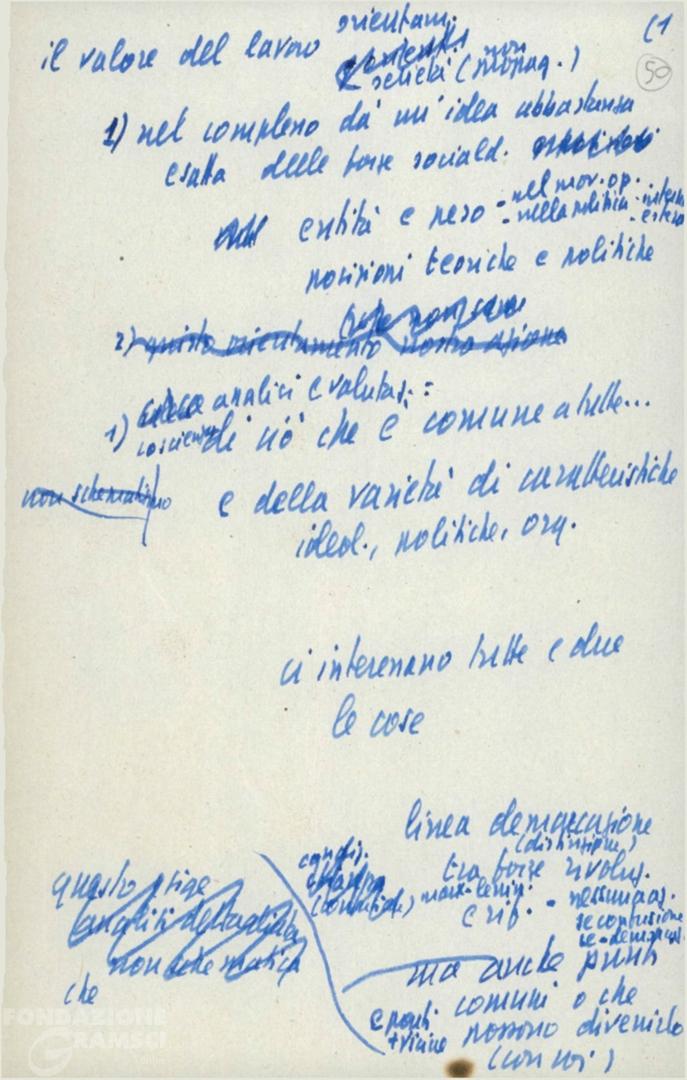 (1
50
orientam.
il valore del lavoro
serietà (non
monag.)
1) nel complesso dà un'idea abbastanza
esatta delle forze sociald.
entità e peso - nel mov. op.
- nella politica - interna
estera
posizioni teoriche e politiche
2) questo orientamento nostra azione
1) analisi e valutaz. :
di ciò che è comune a tutte...
non schematismo
e della varietà di caratteristiche
ideol., politiche, org.
ci interessano tutte e due
le cose
linea demarcazione
(distinzione)
tra forze rivoluz.
marx-lenin.
e rif. - nessuna
se confusione
questo esige
analisi dettagliata
non schematica
che
ma anche punti
comuni o che
e punti
+ vicine
possono divenirlo
(con noi)
FONDAZIONE
GRAMSCI